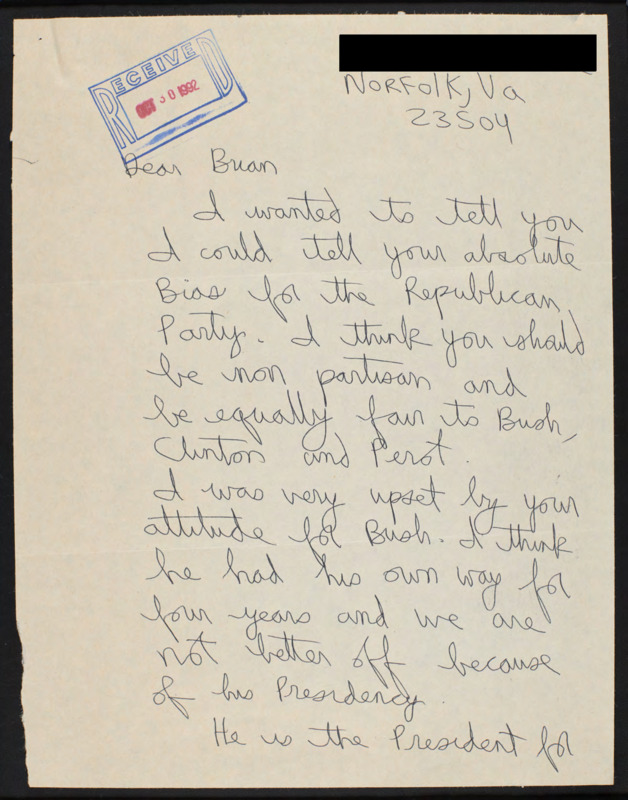 RECEIVED
OCT 30 1992
Norfolk, Va
23504
Dear Brian
I wanted to tell you
I could tell your absolute
Bias for the Republican
Party. I think you should
be non partisan and
be equally fair to Bush,
Clinton and Perot.
I was very upset by your
attitude for Bush. I think
he had his own way for
four years and we are
not better off because
of his Presidency.
He is the President for